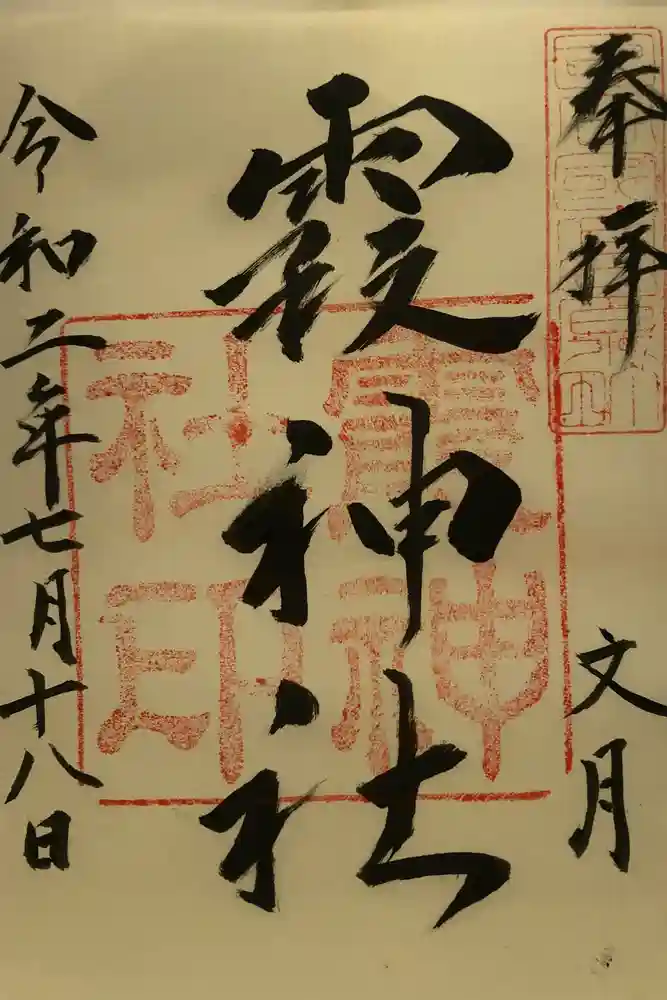 奉拝
文月
霞神社
霞神
社印
令和二年七月十八日